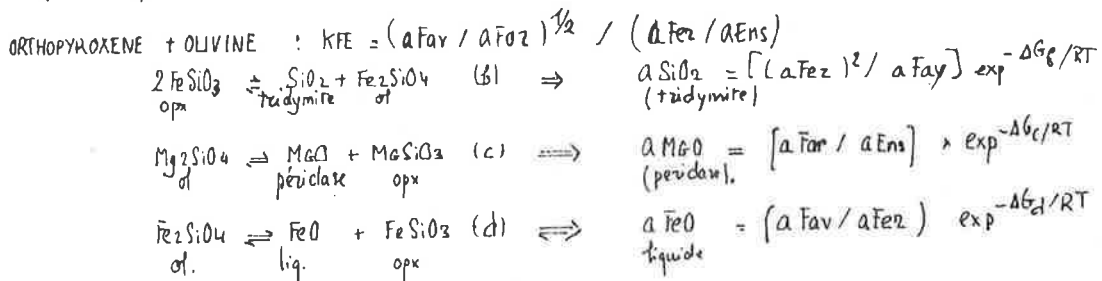 ORTHOPYROXENE + OLIVINE : KFE = (aFav / aFoz)^1/2 / (aFer / aEns)
2 FeSiO3 ⇌ SiO2 + Fe2SiO4 (b) ⇒ aSiO2 = [(aFez)^2 / aFay] exp^-ΔGb/RT
opx tridymite ol (tridymite)
Mg2SiO4 ⇌ MgO + MgSiO3 (c) ⟹ aMgO = [aFor / aEns] * exp^-ΔGc/RT
ol périclase opx (periclase).
Fe2SiO4 ⇌ FeO + FeSiO3 (d) ⟺ aFeO = (aFav / aFez) exp^-ΔGd/RT
ol. liq. opx liquide